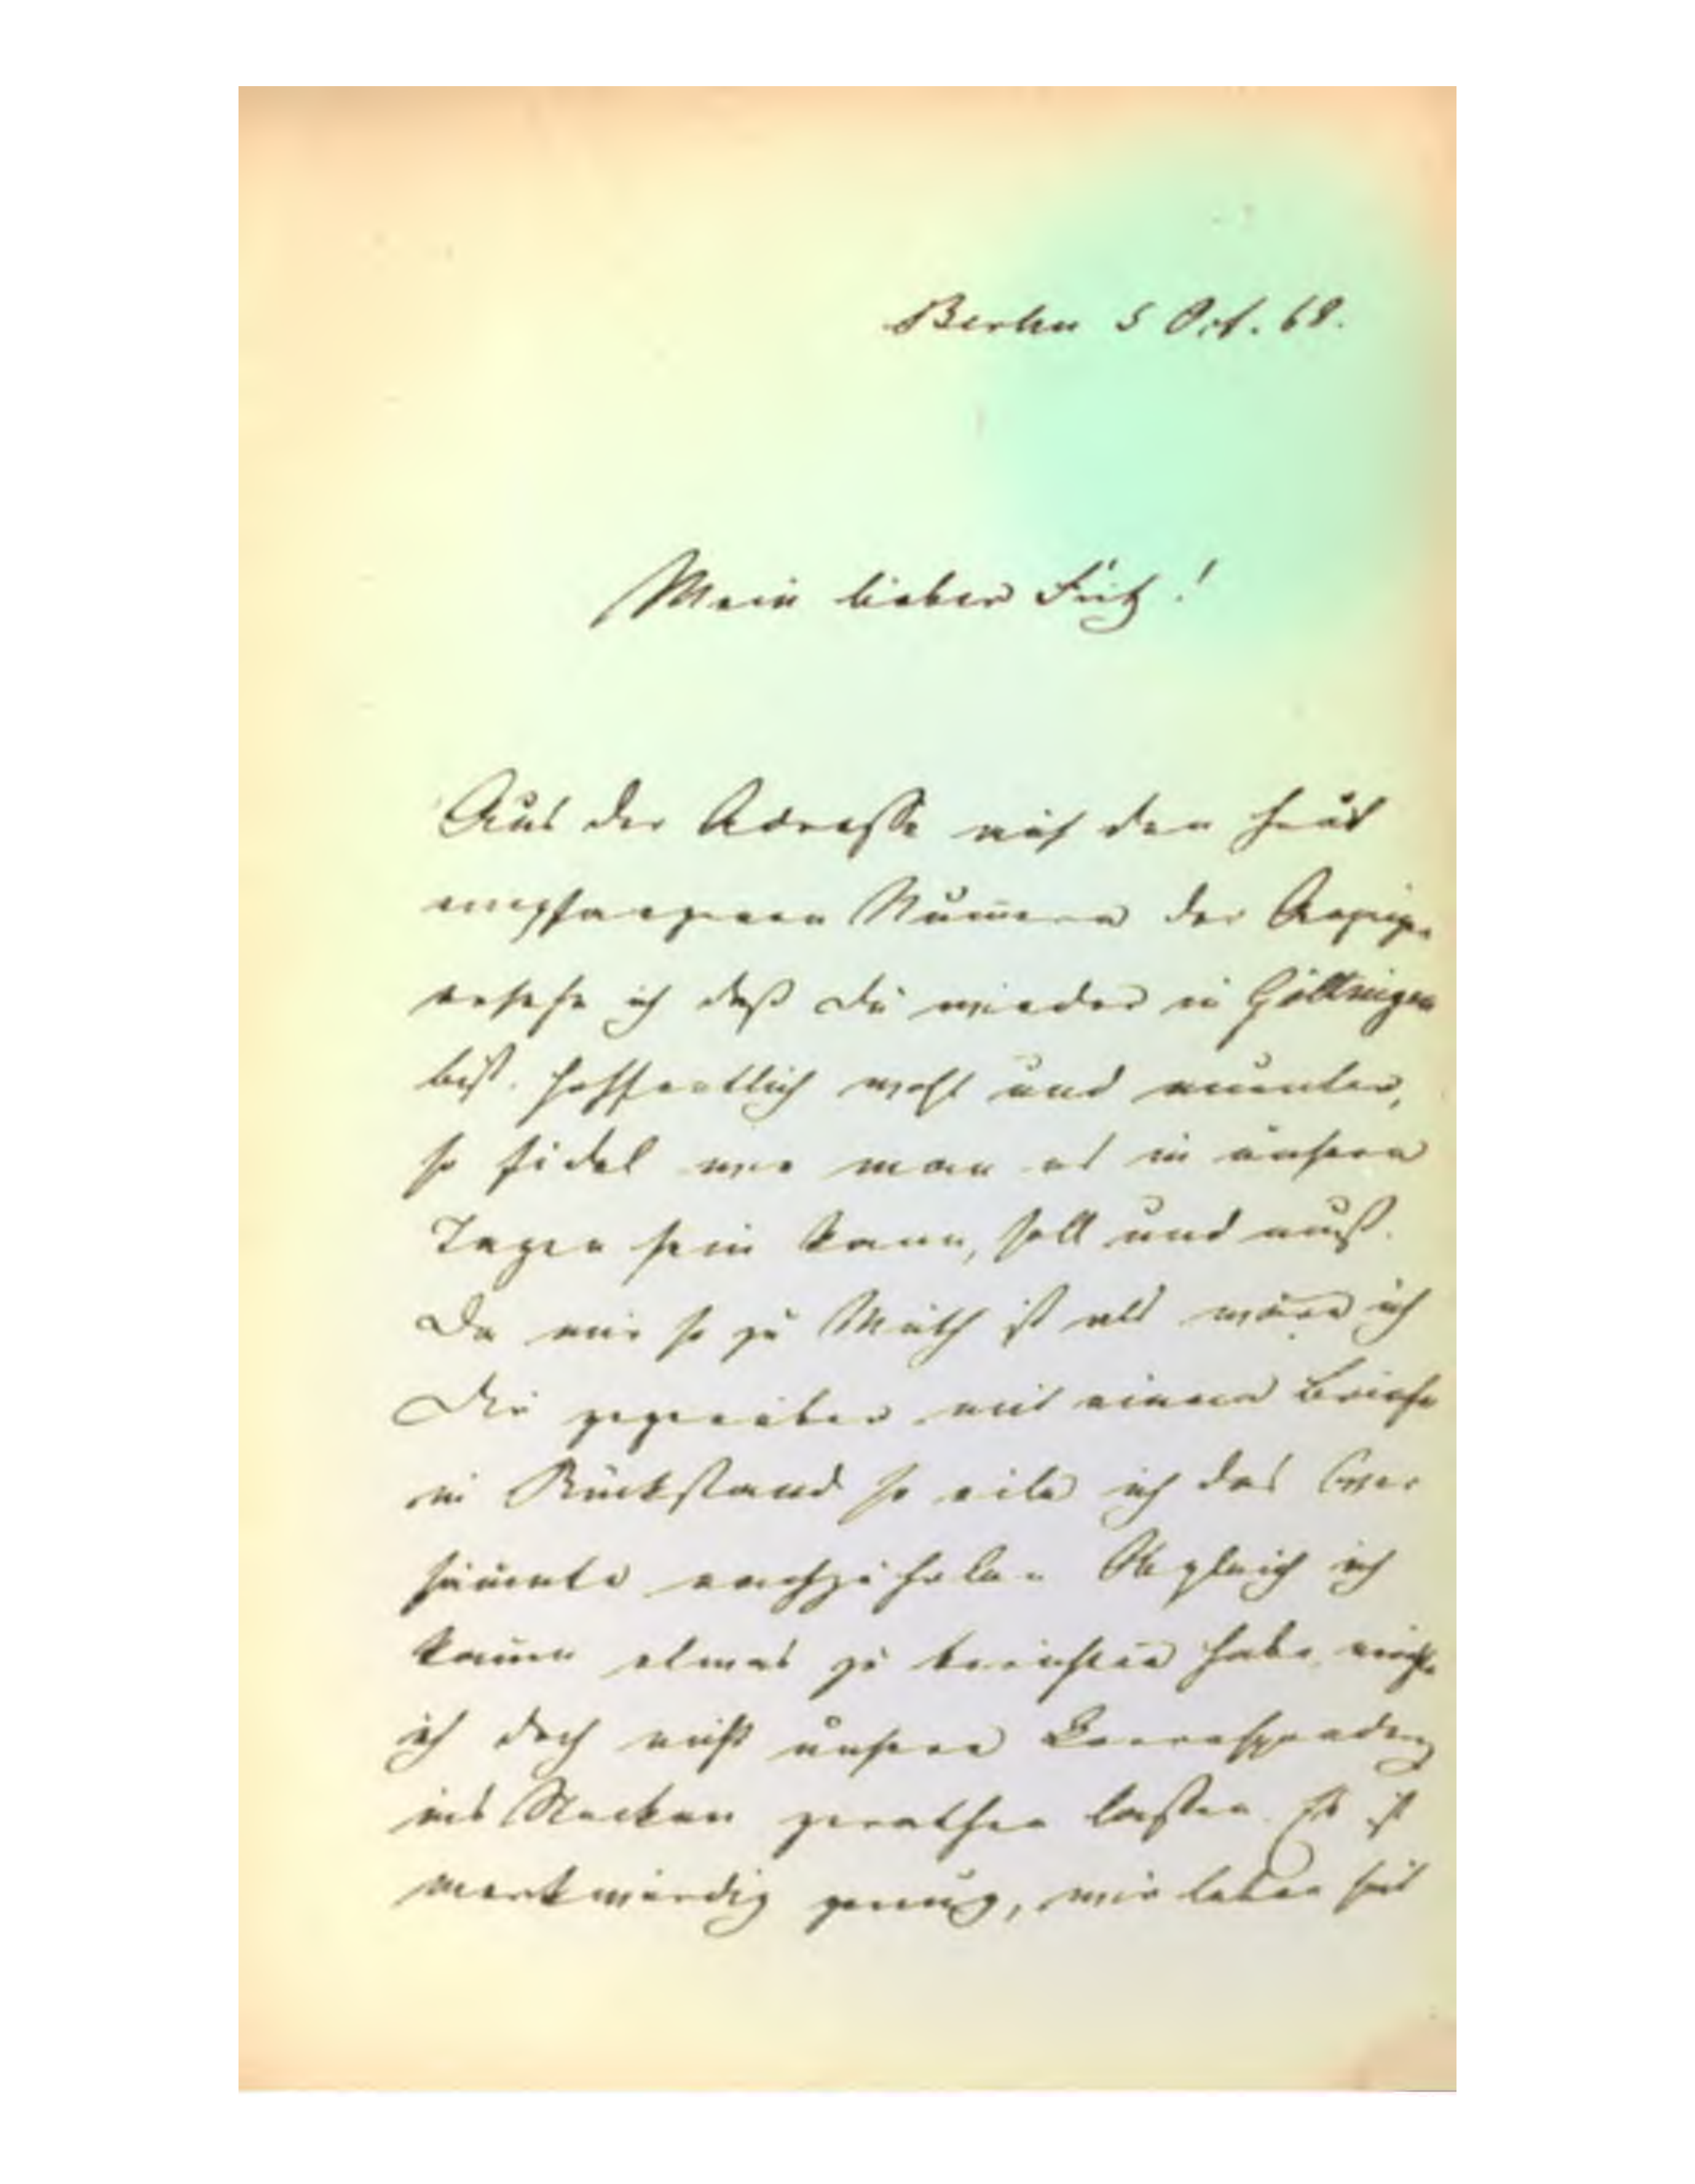 Berlin 5 Oct. 68.
Mein lieber Fritz!
Aus der Adresse auf den heut
empfangenen Nummern der Anzeigen
ersehe ich daß Du wieder in Göttingen
bist. Hoffentlich wohl und munter,
so fidel wie man es in unsern
Tagen sein kann, soll und muß.
Da mir so zu Muth ist als wäre ich
Dir gegenüber mit einem Briefe
in Rückstand so eile ich das Ver
säumte nachzuholen. Obgleich ich
kaum etwas zu berichten habe möchte
ich doch nicht unsere Correspondenz
ins Stocken gerathen lassen. Es ist
merkwürdig genug, wir leben seit